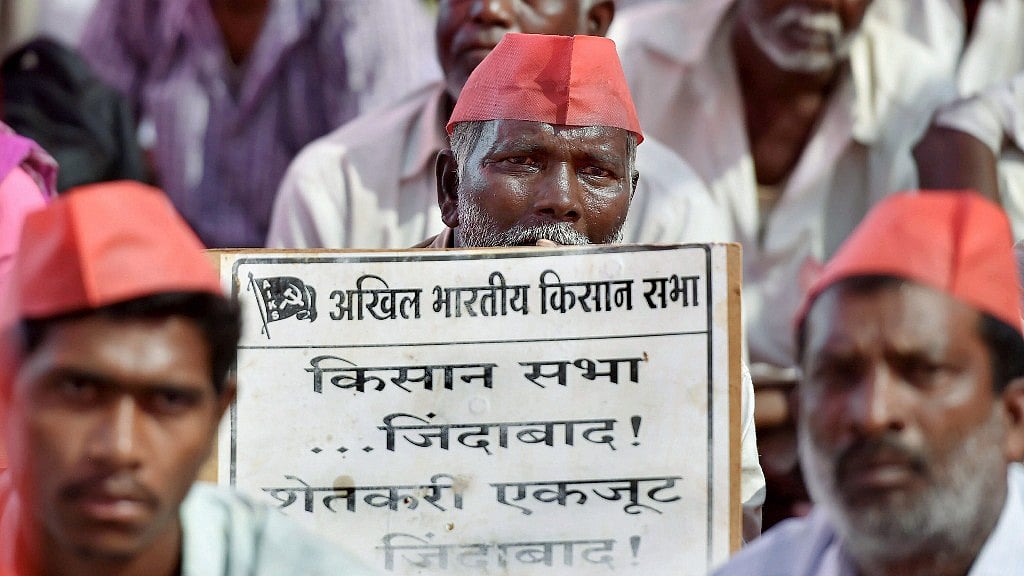 अखिल भारतीय किसान सभा
किसान सभा
...जिंदाबाद!
शेतकरी एकजूट
जिंदाबाद!